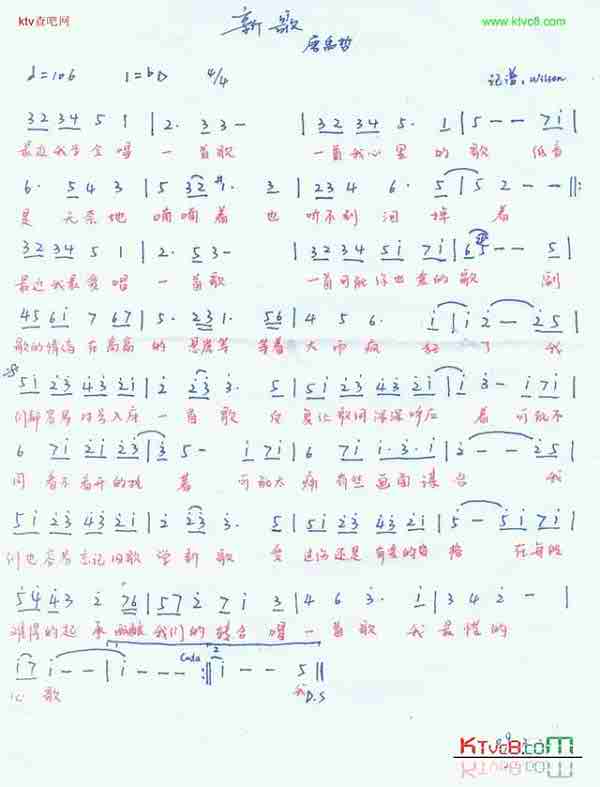 ktv查吧网
www.ktvc8.com
新歌
唐禹哲
♩=106 1=bD 4/4 记谱: Wilson
3 2 3 4 5 1 | 2· 3 3 - | 3 2 3 4 5· 1 | 5 - - 7 i |
最近我学会唱 一 首歌 一首我心里 的 歌 低音
6· 5 4 3 | 5 3 2 · 3 | 2 3 4 6· 5 | 5 2 - - ‖:
是 无奈地 喃喃着 也 听不到 着
3 2 3 4 5 1 | 2· 5 3 - | 3 2 3 4 5 i 7 i | 6 5 - - 5 |
最近我最爱唱 一 首歌 一首可能你也爱的歌 副
4 5 6 i 7 6 7 | 5· 2 3 1· 5 6 | 4 5 6· i | i 2 - - 2 5 |
歌的情绪在高高 的 等着大 疯 了 我
5 i 2 3 4 3 2 i | 2 2 3 3· 5 | 5 i 2 3 4 3 2 i | i 3 - i 7 i |
们都容易对号入座 一 首 歌 反 复让歌词深深呼应 着 可能不
6 7 i 2 i 2 3 | 3 5 - i 7 i | 6 7 i i · 3 · i | 2 - - 2 5 |
同 看不看开的 着 可能太 痛 有些画面谋合 我
5 i 2 3 4 3 2 i | 2 2 3 3· 5 | 5 i 2 3 4 3 2 i | 5 - 5 i 7 i |
们也容易忘记旧歌 学 新 歌 爱 过伤还是有爱的资格 在每段
5 4 4 3 2 7 6 | 5 7 2 7 i 3 | 4 6 3· i | 3 4 2 - |
难得的起 承 我们的转合 唱 一 首 歌 我 最懂的
i 7 i - - | i - - - :‖ i - - 5 ‖
Coda
1 2
心 歌 我 D.S
KTvc8.com